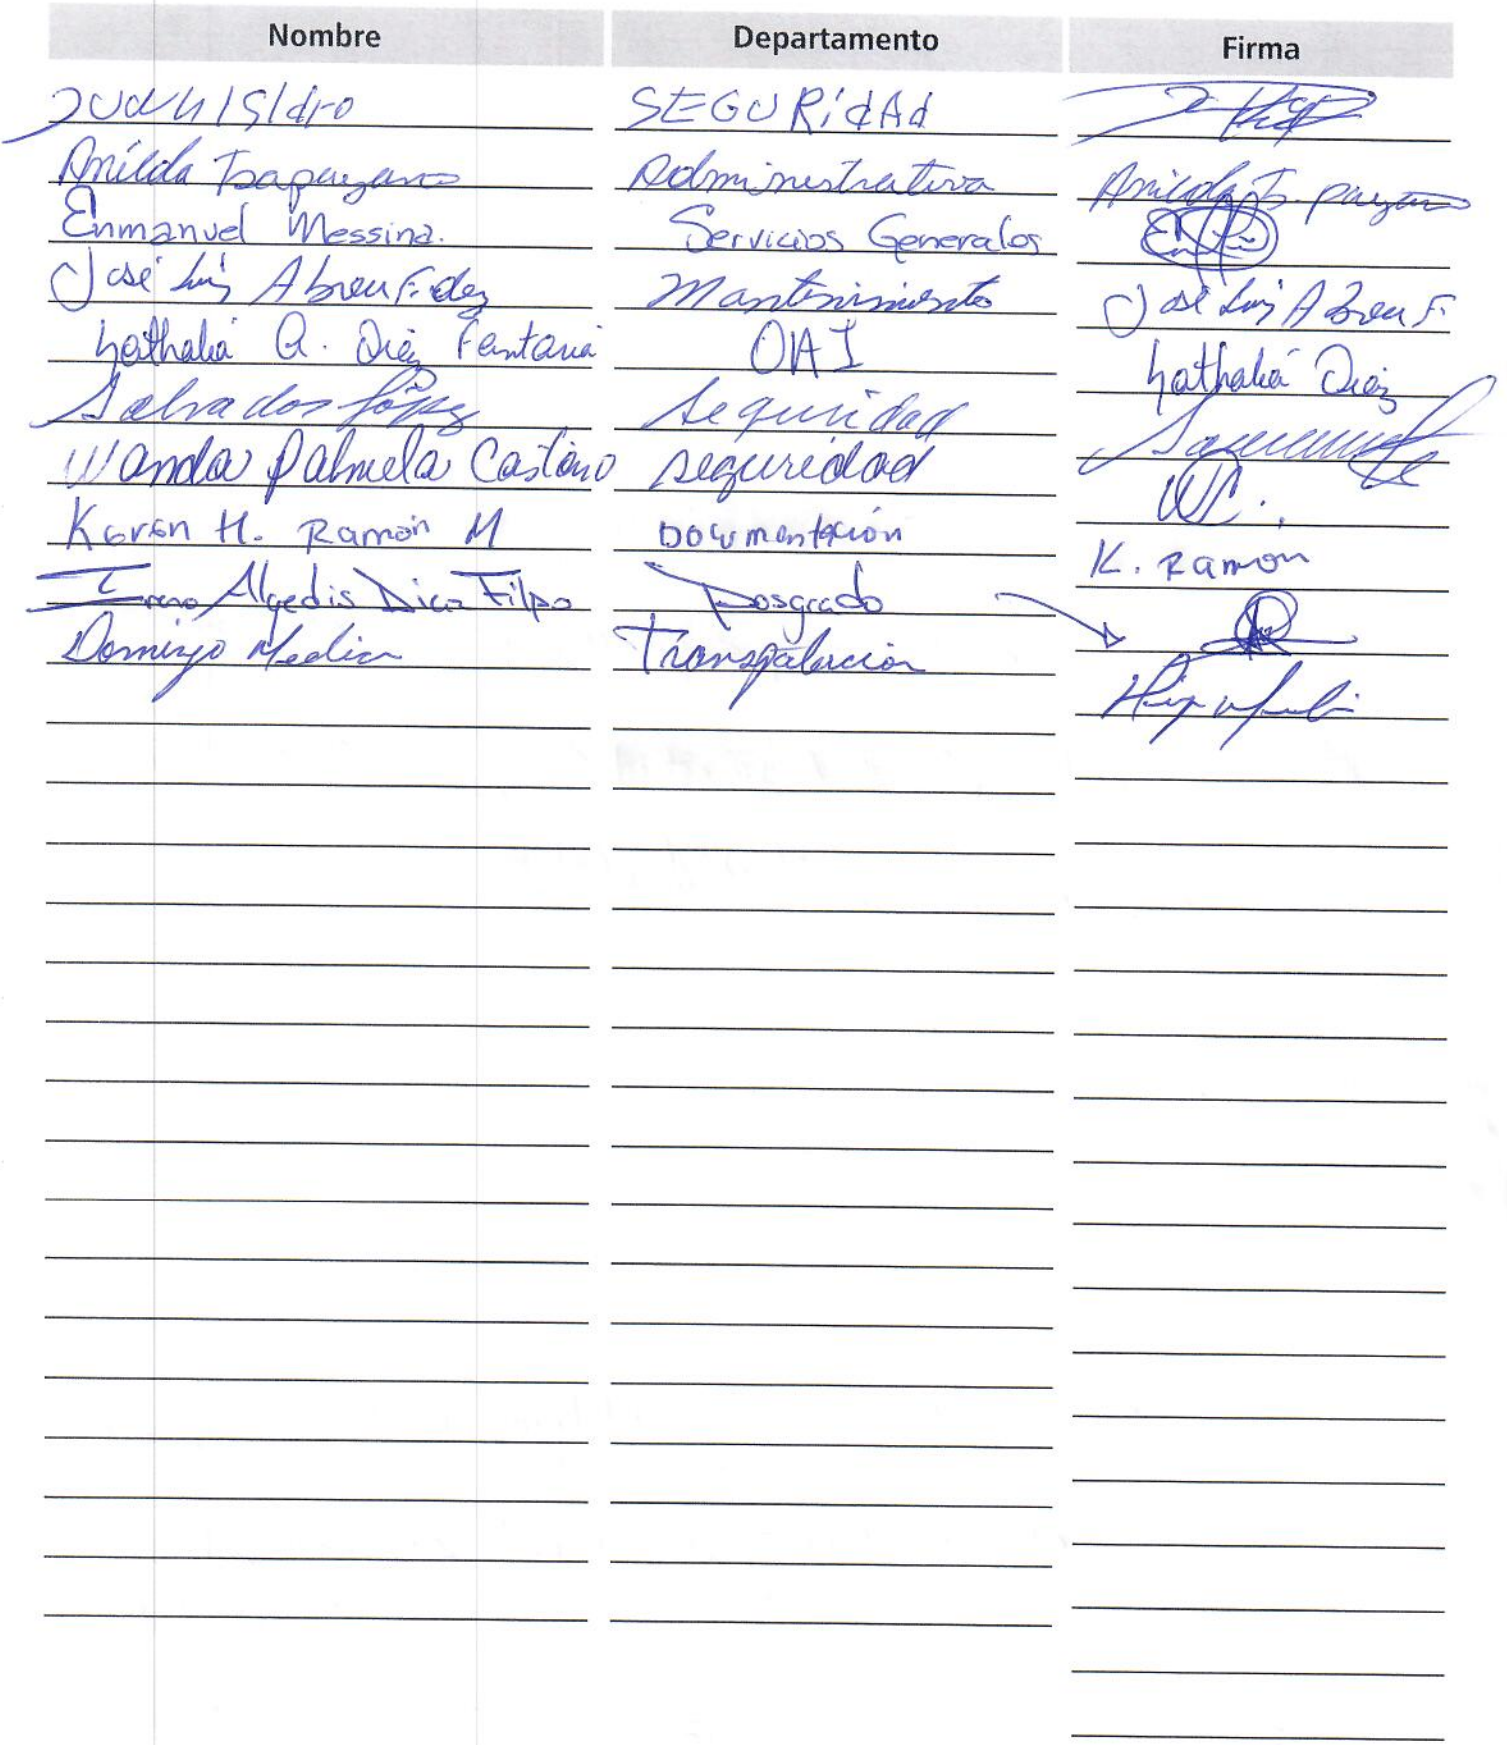 Nombre Departamento Firma
Juan Isidro SEGURidAd
Anilda Administrativa Anilda
Enmanuel Messina. Servicios Generales
José Luis Abreu Mantenimiento José Luis Abreu F.
Nathalia A. Díaz OAI Nathalia Díaz
Salvador López Seguridad
Wanda Palmela Castano seguridad WC.
Karen H. Ramón M Documentación K. Ramon
Algedis Diaz Filpo Posgrado
Domingo Medina